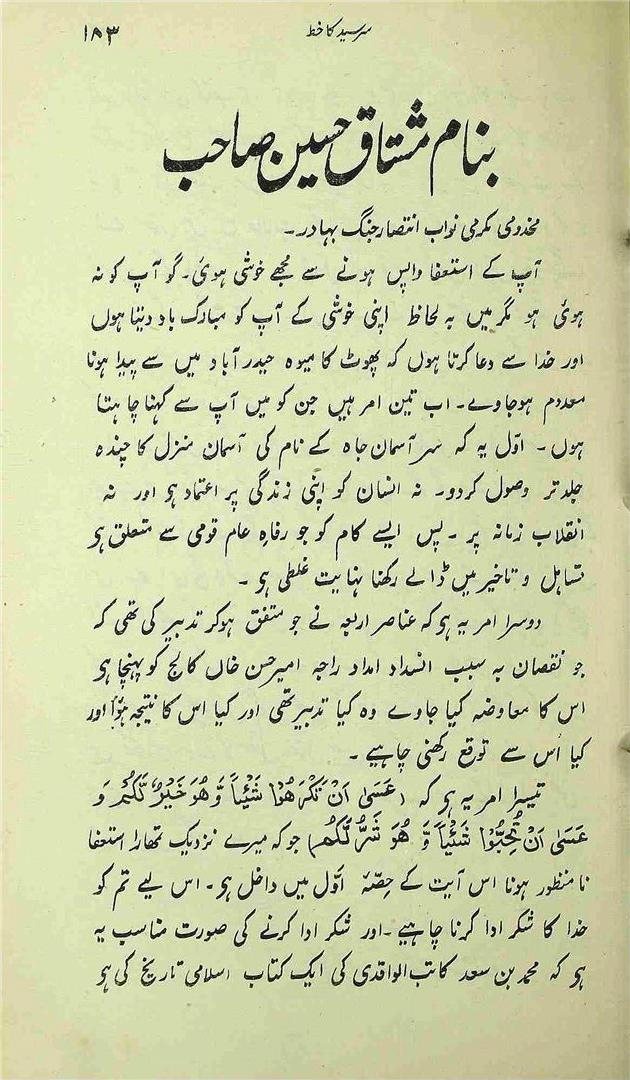 سرسید کا خط ۱۸۳
بنام مشتاق حسین صاحب
مخدومی مکرمی نواب انتصار جنگ بہادر۔
آپ کے استعفا واپس ہونے سے مجھے خوشی ہوئی۔ گو آپ کو نہ
ہوئی ہو مگر میں بہ لحاظ اپنی خوشی کے آپ کو مبارک باد دیتا ہوں
اور خدا سے دعا کرتا ہوں کہ پھوٹ کا میوہ حیدر آباد میں سے پیدا ہونا
معدوم ہوجاوے۔ اب تین امر ہیں جن کو میں آپ سے کہنا چاہتا
ہوں۔ اوّل یہ کہ سر آسمان جاہ کے نام کی آسمان منزل کا چندہ
جلد تر وصول کردو۔ نہ انسان کو اپنی زندگی پر اعتماد ہو اور نہ
انقلاب زمانہ پر۔ پس ایسے کام کو جو رفاہِ عام قومی سے متعلق ہو
تساہل و تاخیر میں ڈالے رکھنا نہایت غلطی ہو۔
دوسرا امر یہ ہو کہ عناصر اربعہ نے جو متفق ہوکر تدبیر کی تھی کہ
جو نقصان بہ سبب انسداد امداد راجہ امیر حسن خاں کالج کو پہنچا ہو
اس کا معاوضہ کیا جاوے وہ کیا تدبیر تھی اور کیا اس کا نتیجہ ہوٴا اور
کیا اُس سے توقع رکھنی چاہیے۔
تیسرا امر یہ ہو کہ (عَسَىٰ اَنْ تَكْرَهُوْا شَيْئًا وَّهُوَ خَيْرٌ لَّكُمْ وَ
عَسَىٰ اَنْ تُحِبُّوْا شَيْئًا وَّ هُوَ شَرٌّ لَّكُمْ) جو کہ میرے نزدیک تمھارا استعفا
نامنظور ہونا اس آیت کے حِصّہ اوّل میں داخل ہو۔ اس لیے تم کو
خدا کا شکر ادا کرنا چاہیے۔ اور شکر ادا کرنے کی صورت مناسب یہ
ہو کہ محمد بن سعد کاتب الواقدی کی ایک کتاب اسلامی تاریخ کی ہو